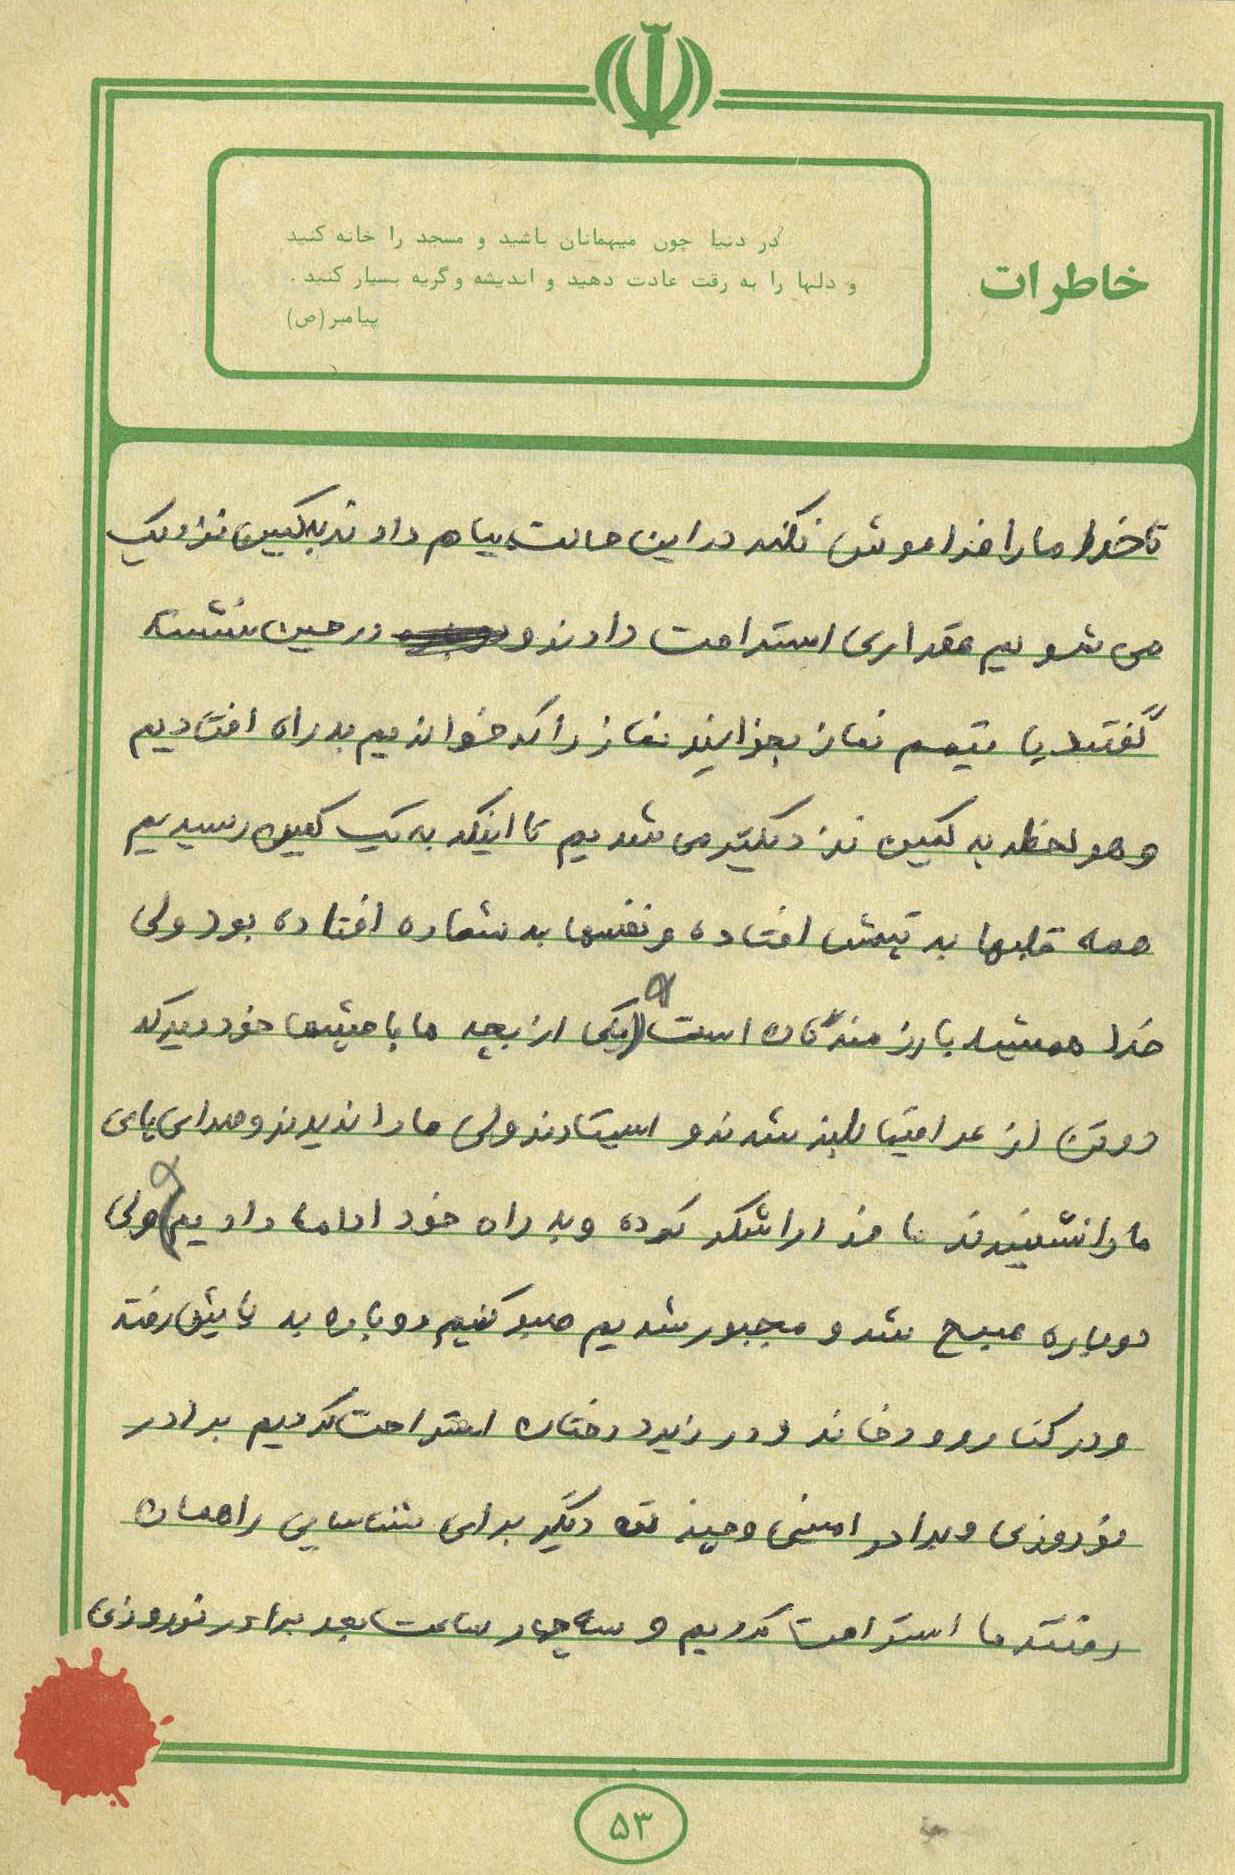 خاطرات
در دنیا چون میهمانان باشید و مسجد را خانه کنید
و دلها را به رقت عادت دهید و اندیشه و گریه بسیار کنید .
پیامبر (ص)
تا خدا ما را فراموش نکند در این حالت پیام دادند به کمین نزدیک
می شویم مقداری استراحت دادند و در حین نشسته
گفتند با تیمم نماز بخوانید نماز را که خواندیم به راه افتادیم
و هر لحظه به کمین نزدیکتر می شدیم تا اینکه به یک کمین رسیدیم
همه قلبها به تپش افتاده و نفسها به شماره افتاده بود ولی
خدا همیشه با رزمندگان است (یکی از بچه ها با چشمها خود دید که
دو تن از عراقیها بلند شدند و ایستادند ولی ما را ندیدند و صدای پای
ما را نشنیدند ما خدا را شکر کرده و به راه خود ادامه دادیم) ولی
دوباره صبح شد و مجبور شدیم صبر کنیم دوباره به پائین رفته
و در کنار رودخانه و در زیر درختان استراحت کردیم برادر
نوروزی و برادر امینی و چند نفر دیگر برای شناسایی راهمان
رفتند ما استراحت کردیم و سه چهار ساعت بعد برادر نوروزی
۵۳